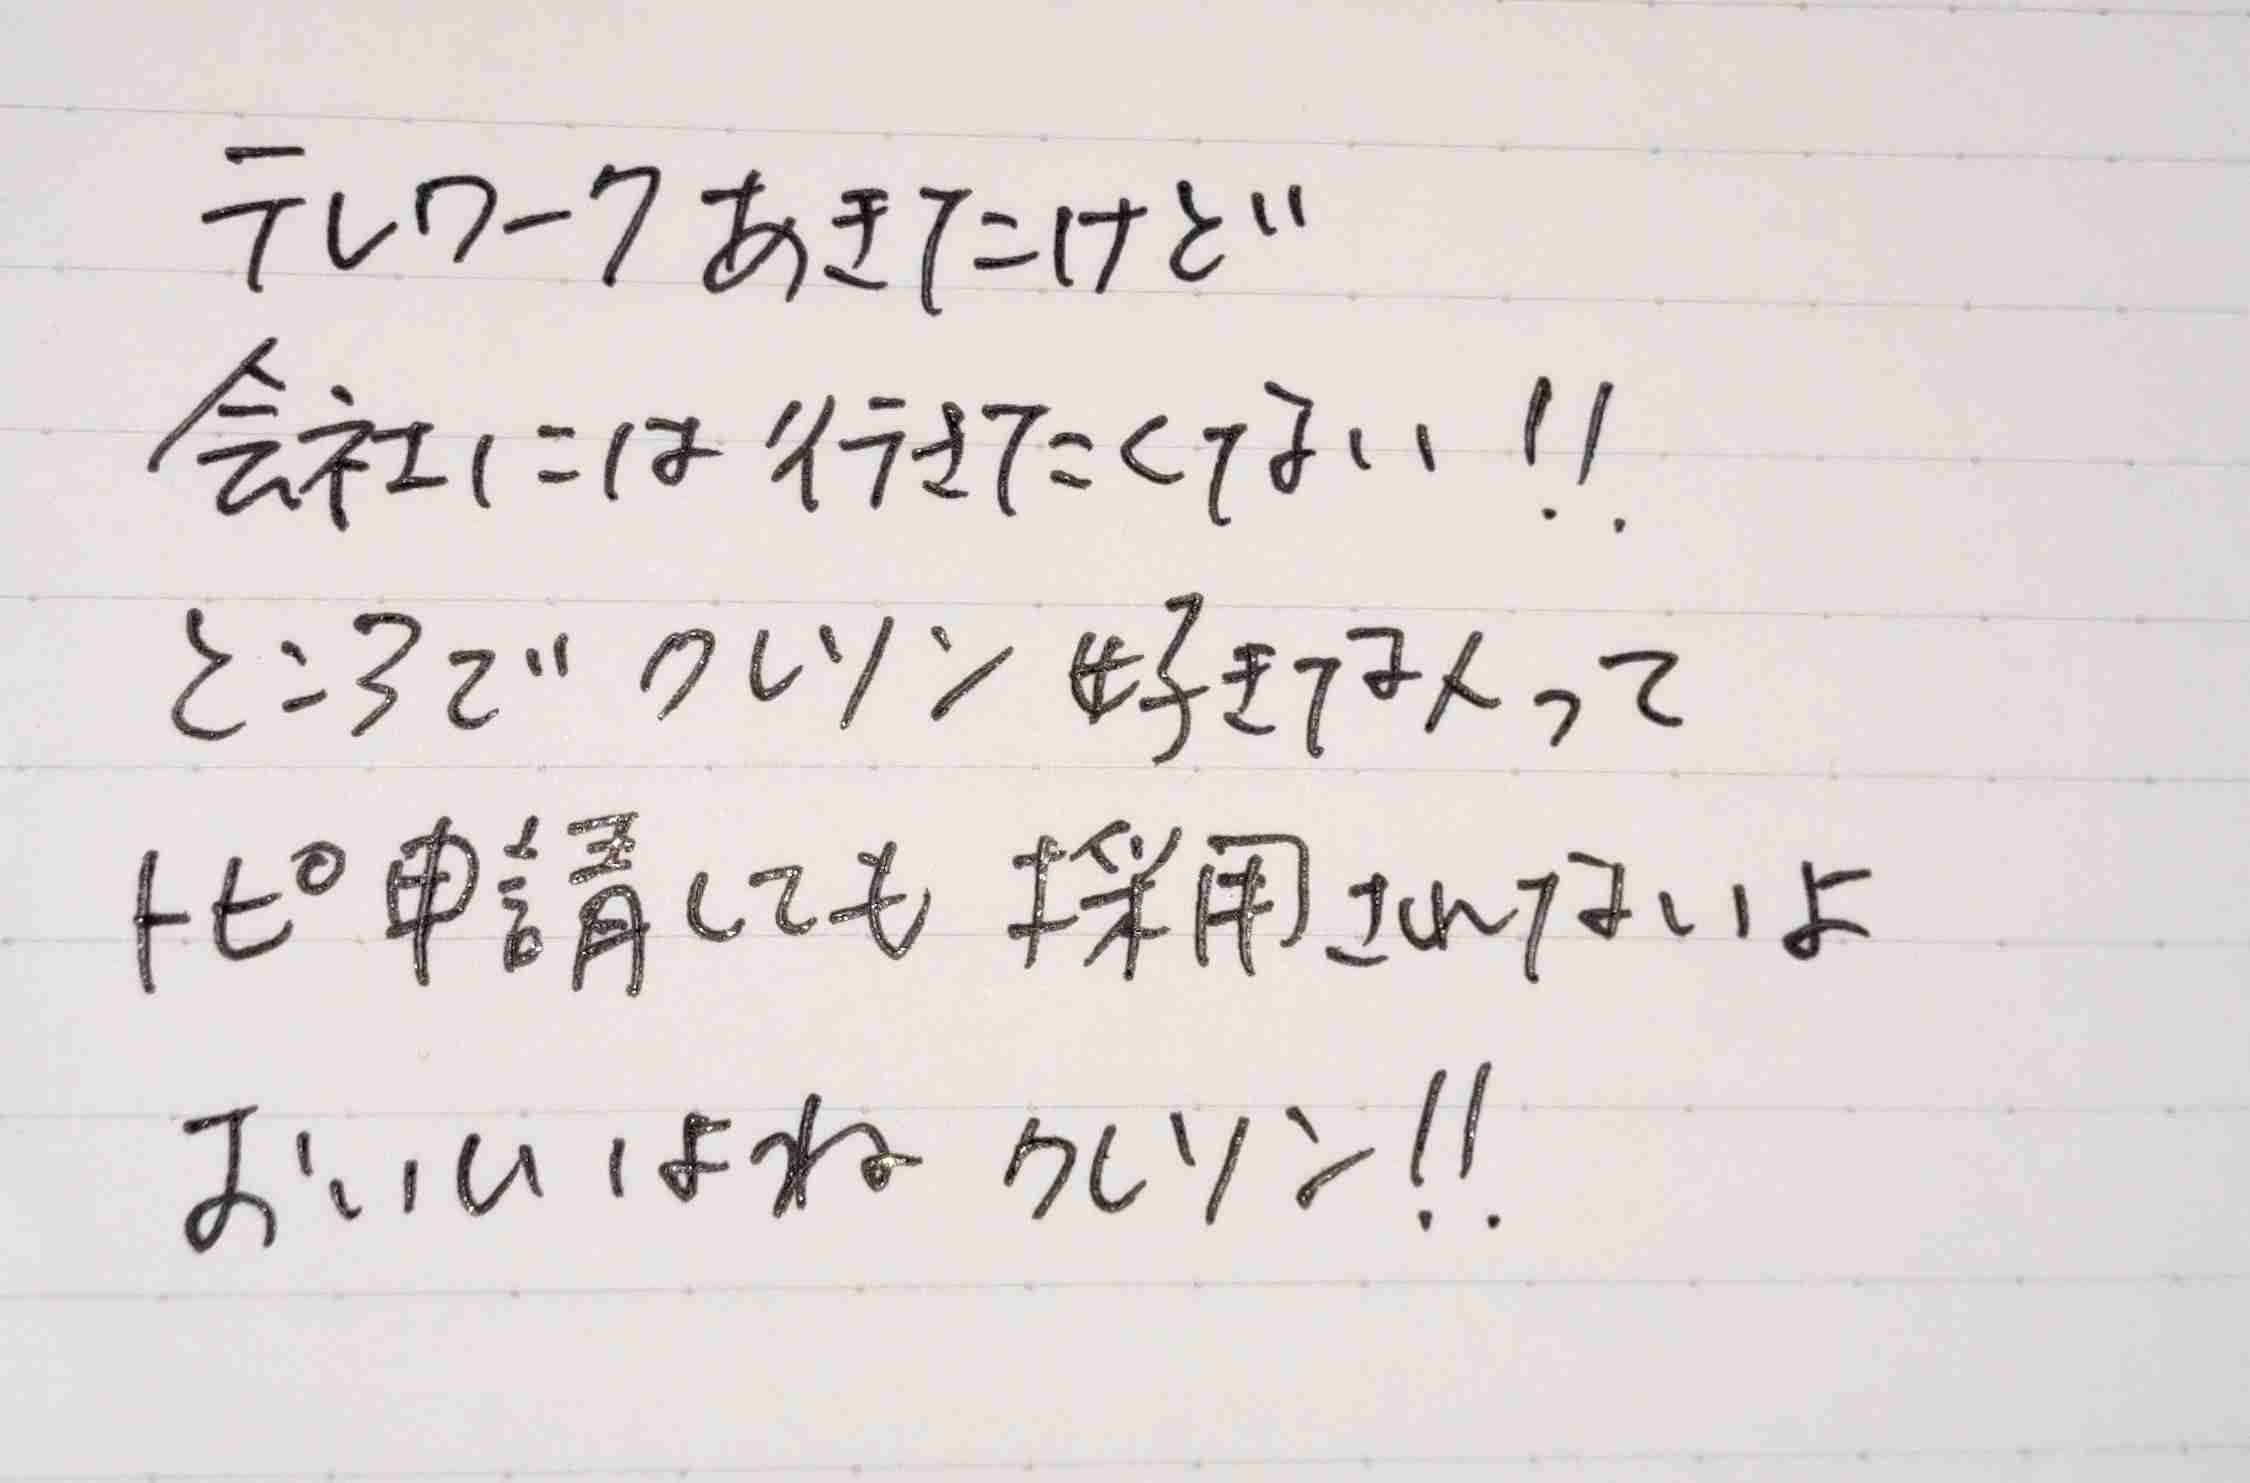 テレワークあきたけど
会社には行きたくない!!
ところでクレソン好きな人って
トピ申請しても採用されないよ
おいしいよねクレソン!!